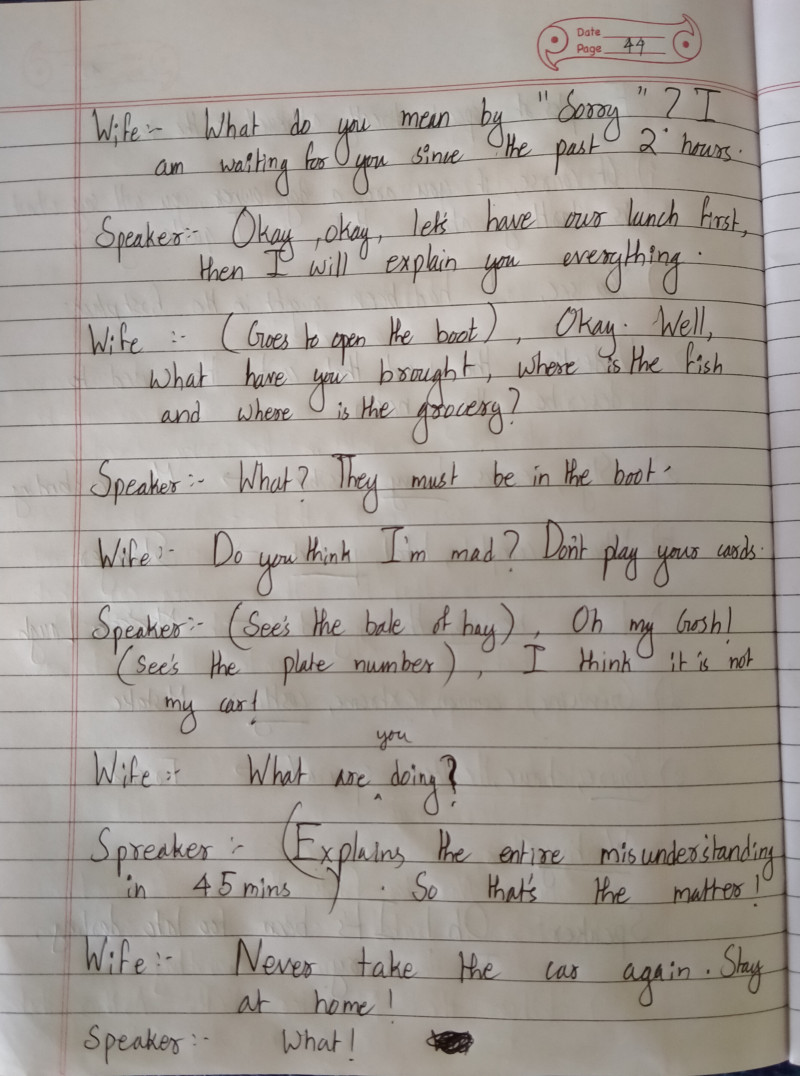 Date
Page 44
Wife:- What do you mean by "Sorry"? I
am waiting for you since the past 2 hours.
Speaker:- Okay, okay, let's have our lunch first,
then I will explain you everything.
Wife :- (Goes to open the boot), Okay. Well,
what have you brought, where is the fish
and where is the grocery?
Speaker:- What? They must be in the boot.
Wife:- Do you think I'm mad? Don't play your cards.
Speaker:- (See's the bale of hay), Oh my Gosh!
(See's the plate number), I think it is not
my car!
Wife:- What are you doing?
Spreaker:- (Explains the entire misunderstanding
in 45 mins). So that's the matter!
Wife:- Never take the car again. Stay
at home!
Speaker:- What!